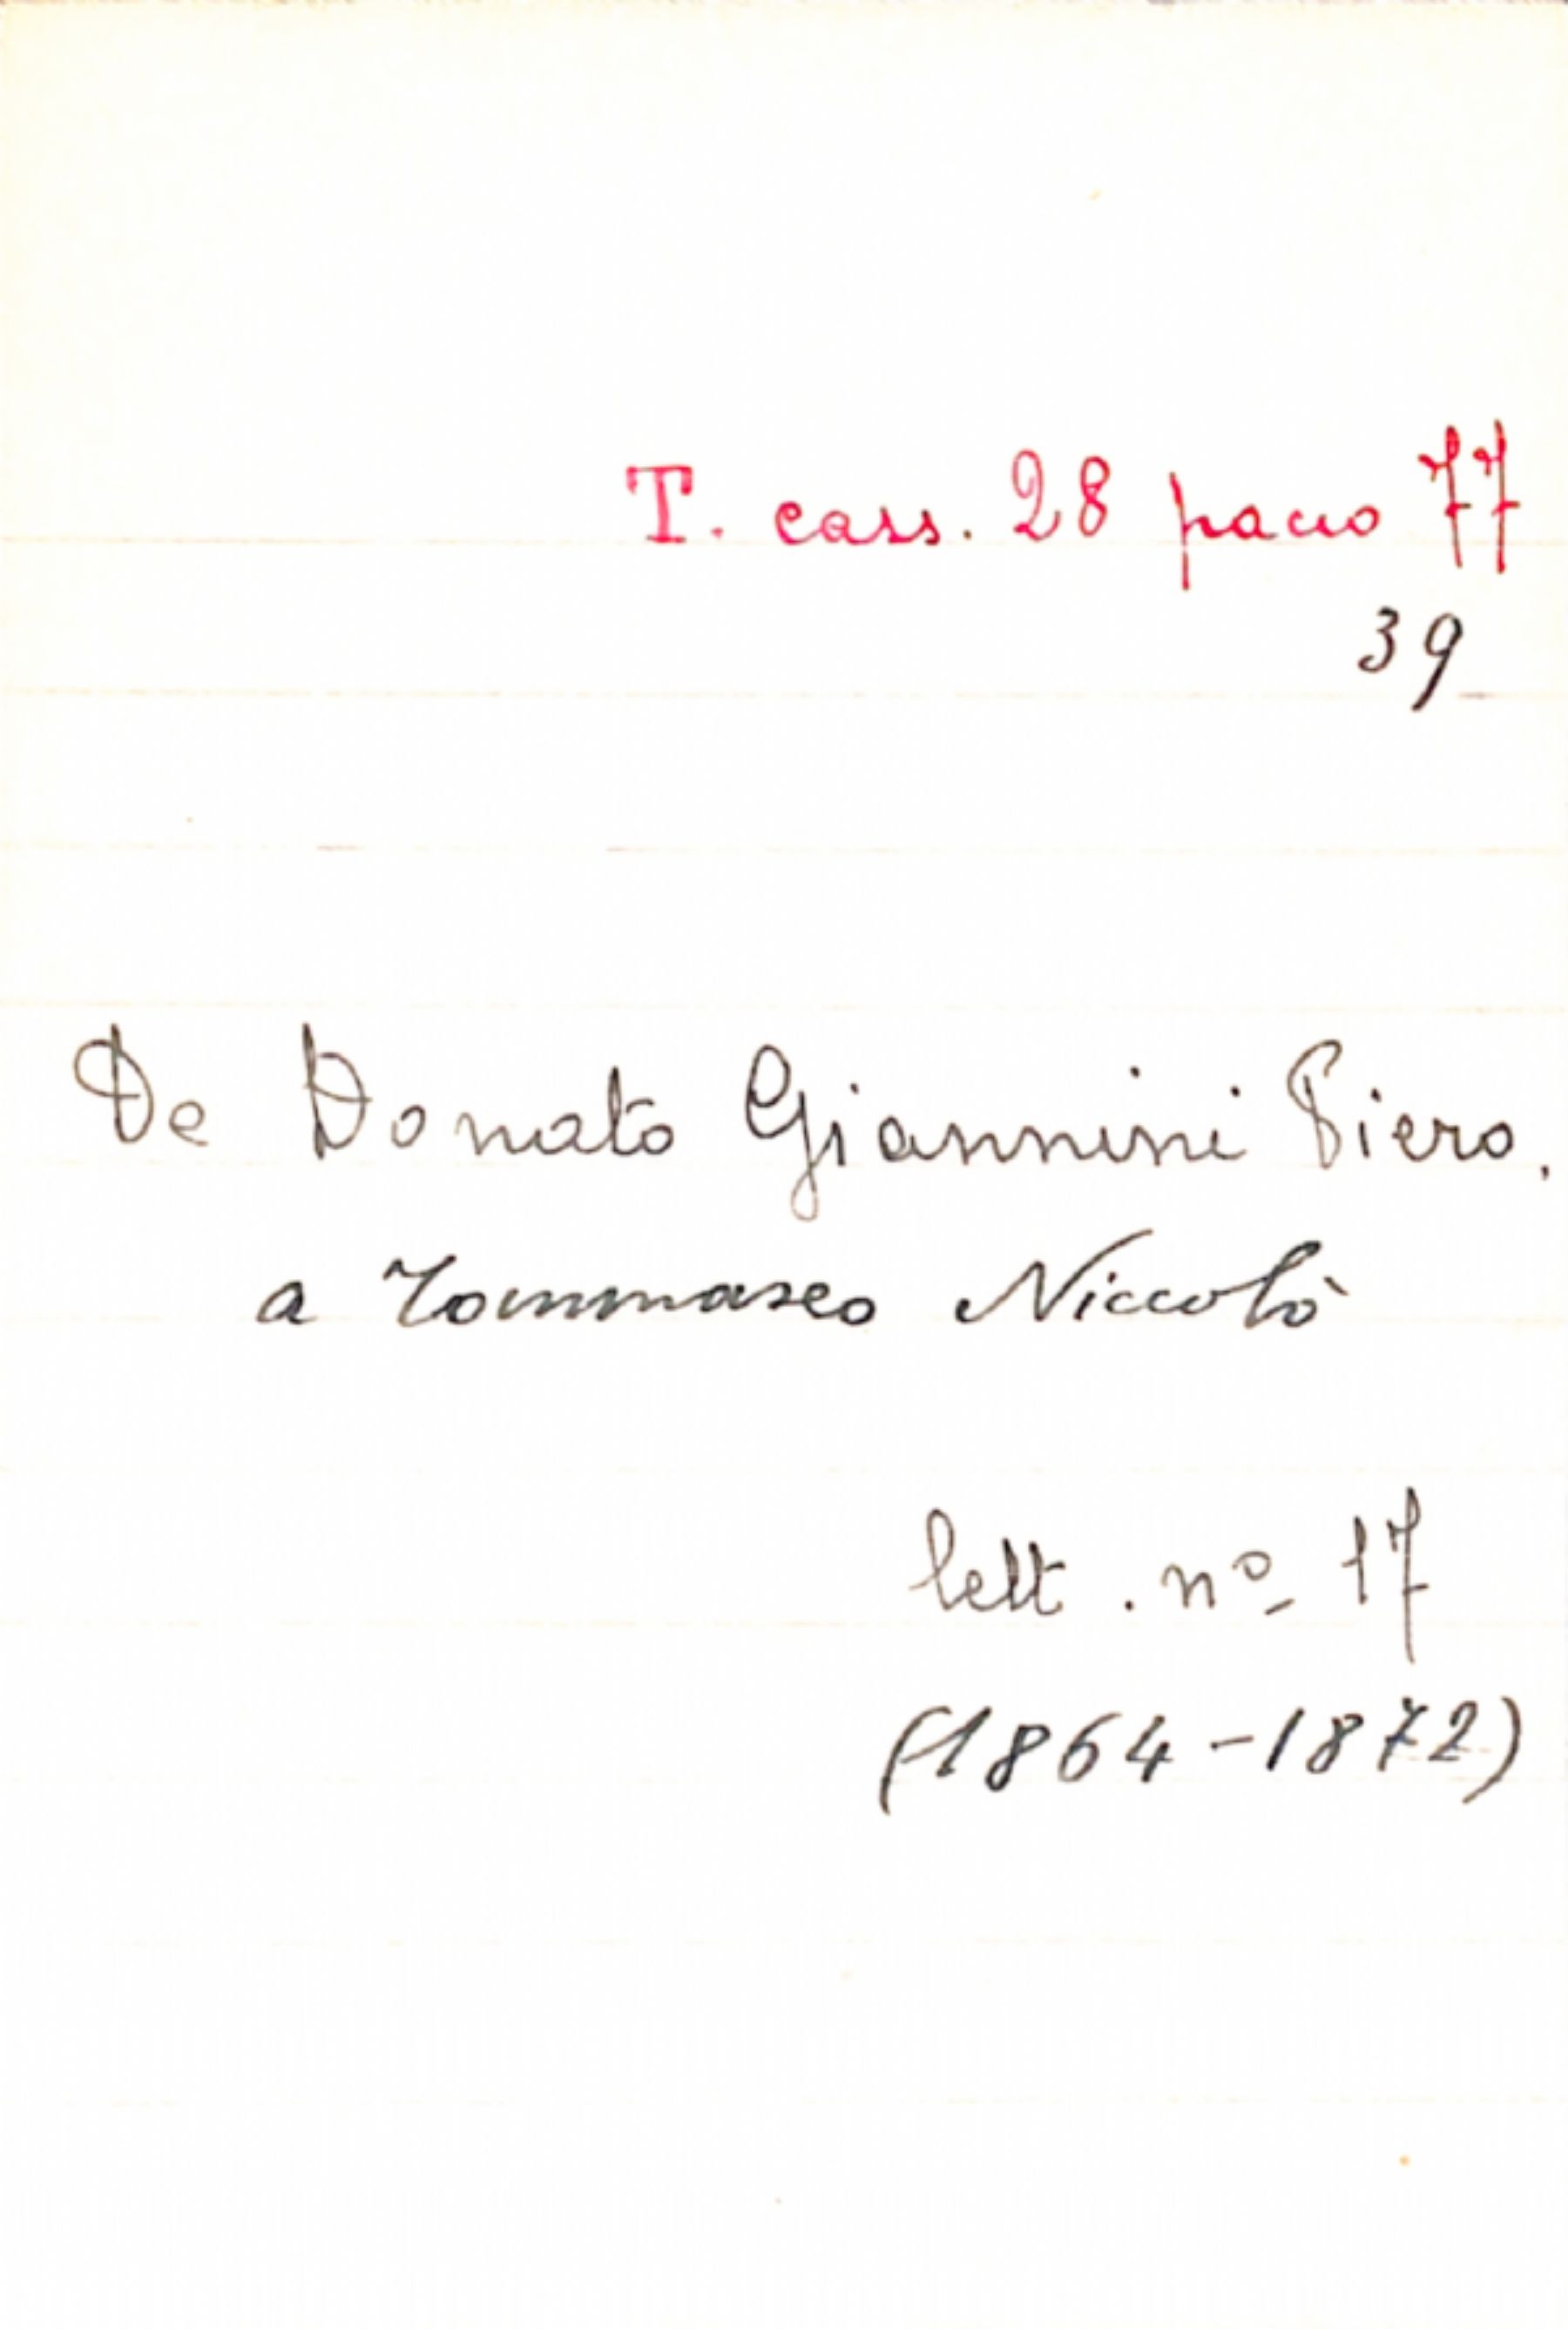 T. cass. 28 pacco 77
39
De Donato Giannini Piero.
a Tommaseo Niccolò
lett. nº 17
(1864-1872)